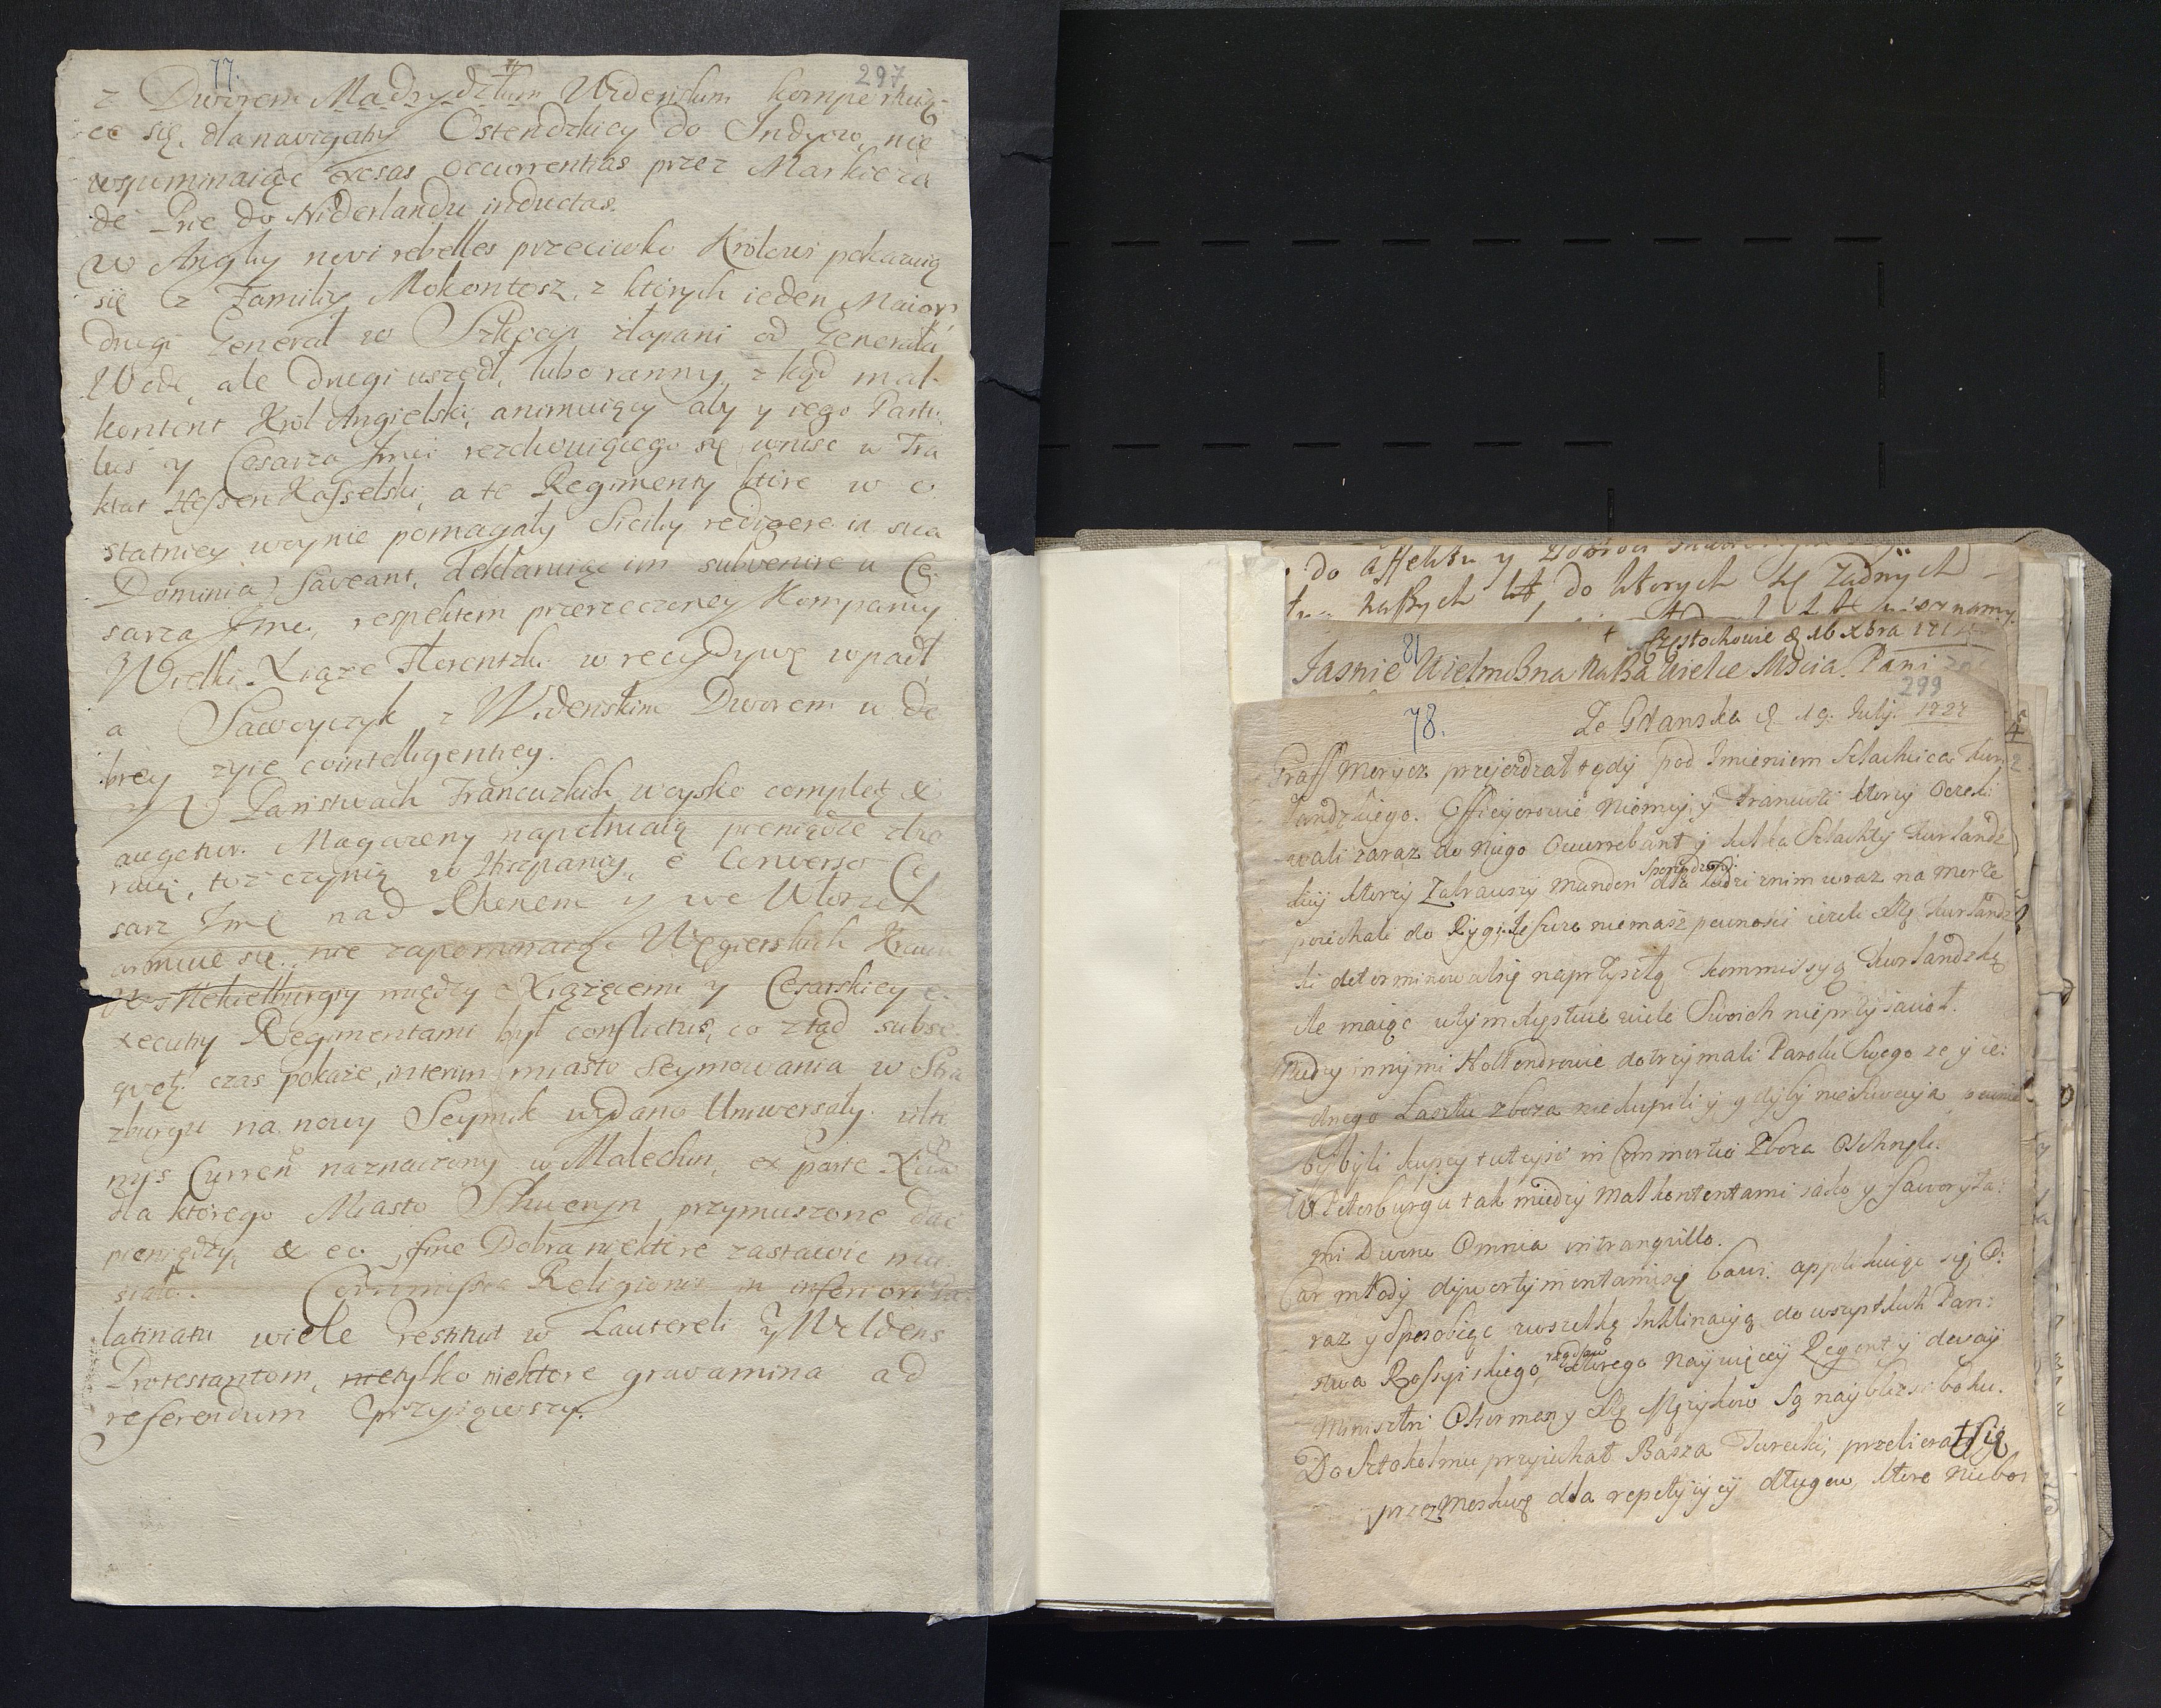 77.
297
z Dworem Madrydzkim Widenskim komportuią-
ce się, dla navigatiy Ostendzkiey do Indyow, nie
wspominaiąc exosas occurrentias przez Markieza
de Prie do Niderlandu inductas.
W Angliy novi rebelles przeciwko Krolowi pokazuią
się z Familiy Mokontosz, z ktorych ieden Maior,
drugi Generał w Szkocyi złapani od Generała
Wode, ale drugi uszedł, lubo ranny, z kąd mal-
kontent Krol Angielski, animuiący aby y iego Partu
luś y Cesarza Jmci rezolwuiącego się wnisc w Tra
ktat Hessen Kasselski, a te Regimenty ktore w o
statniey woynie pomagały Siciliy redigere in sua
Dominia, faveant, deklaruiąc im subvenire u Ce
sarza Jmci, respektem przerzeczoney Kompaniy
Wielki Xiąze Florentzki w recydywę wpadł,
a Sawoyczyk z Widenskim Dworem w do
brey zyie cointelligentiey.
W Panstwach Francuzkich woysko completè &
augetur. Magazeny napełniaią pieniądze zbie
raią, toz czynią w Hiszpaniy, è converso Ce
sarz Jmć nad Rhenem y we Włoszech
armuie się, nie zapominaiąc Węgierskich
W Meckelburgiy między Xiązęcemi y Cesarskiey e
xecutiy Regimentami był conflictus, co ztąd subse
quet. czas pokaze, interim miasto Seymowania w
zburgu na nowy Seymik wydano Uniwersały. ulti
mis Curren naznaczony w Malechin, ex parte Xcia
dla ktorego Miasto Shweryn przymuszone dać
pieniędzy, & eo fine Dobra niektore zastawić mu
siało. Commissia Religionis in inferiori Pa
latinatu wiele restituit w Lautereli y Weldens
Protestantom, tylko niektore gravamina ad
referendum przyiąwszy.
do affektu y
naszych do ktorych żadnych
Częstochowie d. 16 Xbra
81
Jasnie Wielmożna Naßa Wielce Mścia Pani
299
78.
Ze Gdanska d. 19. Julij. 1727
Graff Morycz przyjezdzał tędy pod Jmieniem Szlachcica Kur
landzkiego. Officyerowie Niemcy, y Francuzi ktorzy Oczeki
wali zaraz do niego Ocurrebant y kilka Szlachty Kurlandz
kiy ktorzy Zabrawszy munder dla ludzi znim wraz na morze
poiechali do Rygi. Jeszcze niemasz pewnosci iezeli Xże Kurlandz
ki determinował się naprzyszłą Kommissyą Kurlandzką
ile maiąc w tym Xięstwie wiele Swoich nieprzyiacioł.
Miedzy innymi Hollendrowie dotrzymali Parolu Swego ze y ie:
dnego Lasztu zboza nie kupili y gdyby nie Szwecyia pewnie
by byli kupcy tuteysi in Commertio Zboza
W Peterburgu tak miedzy Malkontentami iako y Faworyta:
mi Dworu Omnia in tranquillo.
Car młody dywertymentami się bawi applikuiąc się
raz y Sposobiąc wszelką Inklinacyą do wszystkich Pan:
stwa Rossyiskiego, rządow ktorego naywięcey Regenty
Ministri Oherman y Xże Mężykow Są nayblizsi boku.
Do Sztokolmu przyiechał Basza Turecki, przebierał się
przez Moskwę dla repetycyi długow, ktore